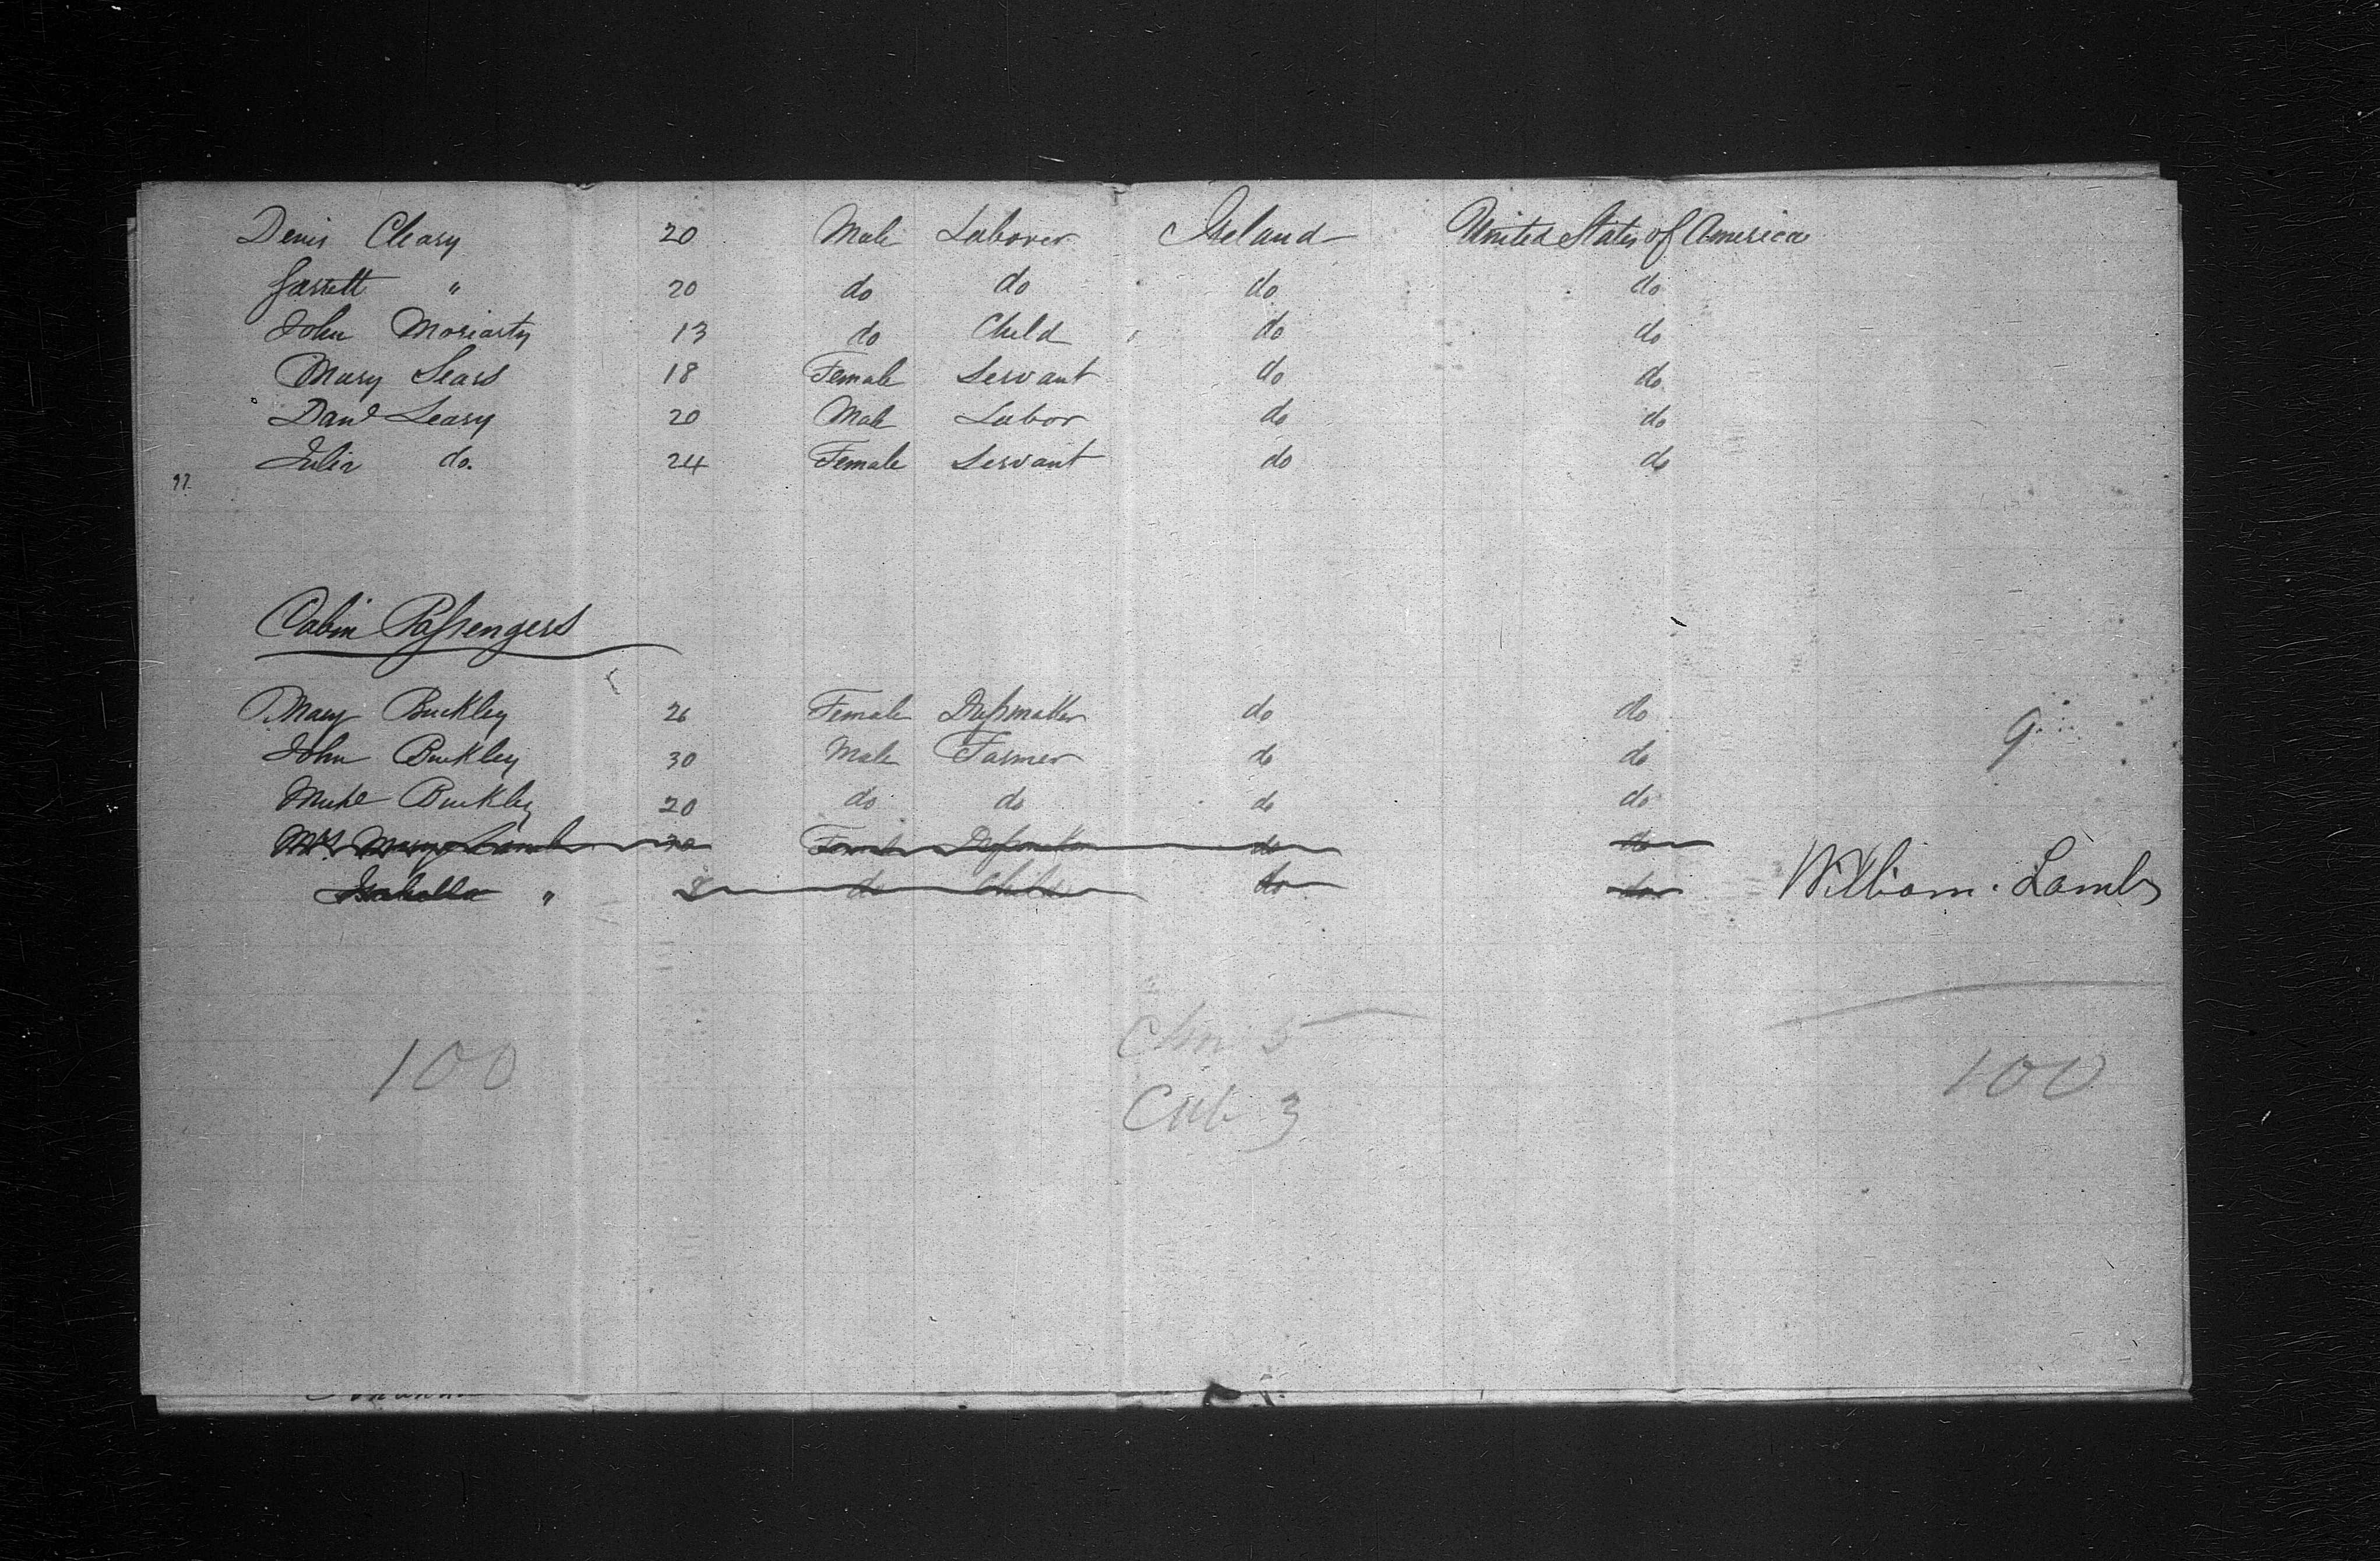 Denis Cleary 20 Male Laborer Ireland United States of America
Garrett " 20 do do do do
John Moriarty 13 do Child do do
Mary Sears 18 Female Servant do do
Danl Leary 20 Male Labor do do
Julia do. 24 Female Servant do do
97
Cabin Passengers
Mary Buckley 26 Female Dressmaker do do
John Buckley 30 Male Farmer do do
9
Michl Buckley 20 do do do do
Mrs Mary Lamb 30 Female Dressmaker do do
Isabella " 8 do Child do do
William. Lamb
100
5
Cab 3
100